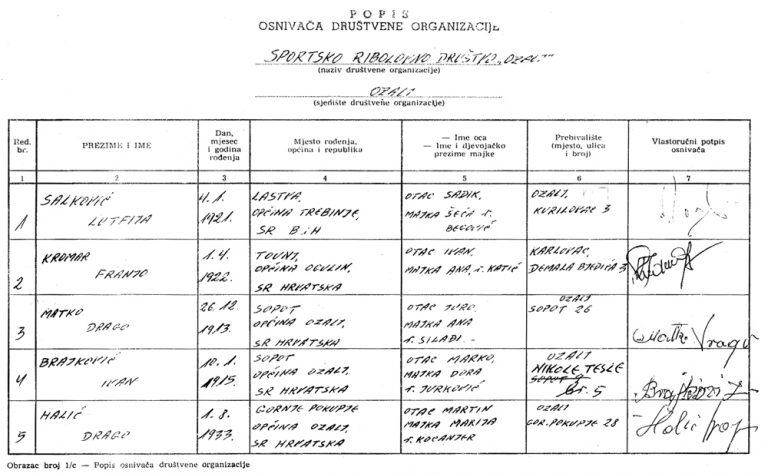 POPIS
OSNIVAČA DRUŠTVENE ORGANIZACIJE
SPORTSKO RIBOLOVNO DRUŠTVO „OZALJ"
(naziv društvene organizacije)
OZALJ
(sjedište društvene organizacije)
Red. br. PREZIME I IME Dan, mjesec i godina rođenja Mjesto rođenja, općina i republika — Ime oca — Ime i djevojačko prezime majke Prebivalište (mjesto, ulica i broj) Vlastoručni potpis osnivača
1 2 3 4 5 6 7
SALKOVIĆ 4. 1. LASTVA, OTAC SADIK, OZALJ,
1 LUTFIJA 1921. OPĆINA TREBINJE, MAJKA ŠEĆA r. KURILOVAC 3
SR BiH BEGOVIĆ
KROMAR 1. 4. TOUNJ, OTAC IVAN, KARLOVAC,
2 FRANJO 1922. OPĆINA OGULIN, MAJKA ANA, r. KATIĆ DEMALA BJEDIĆA 3
SR HRVATSKA
MATKO 26 12. SOPOT OTAC JURO, OZALJ
3 DRAGO 1913. OPĆINA OZALJ, MAJKA ANA SOPOT 26
SR HRVATSKA r. SILAĐI Matko Dragо
BRAJKOVIĆ 10. 1. SOPOT OTAC MARKO, OZALJ
4 IVAN 1915. OPĆINA OZALJ, MAJKA DORA NIKOLE TESLE
SR HRVATSKA r. JURKOVIĆ Br. 5 Brajković I
HALIĆ 1. 8. GORNJE POKUPJE OTAC MARTIN OZALJ
5 DRAGO 1933. OPĆINA OZALJ, MAJKA MARIJA GOR. POKUPJE 28 Halić
SR HRVATSKA r. KOCANJER
Obrazac broj 1/c — Popis osnivača društvene organizacije